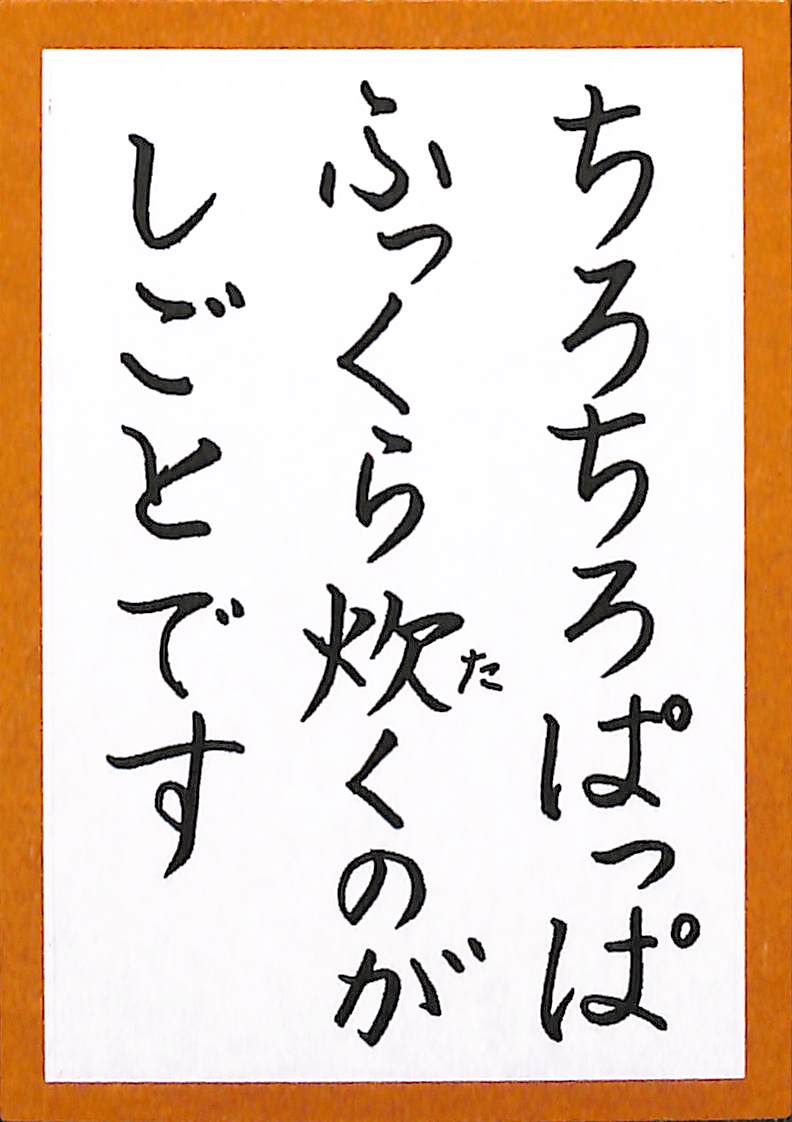 ちろちろぱっぱ
ふっくら炊くのが
た
しごとです